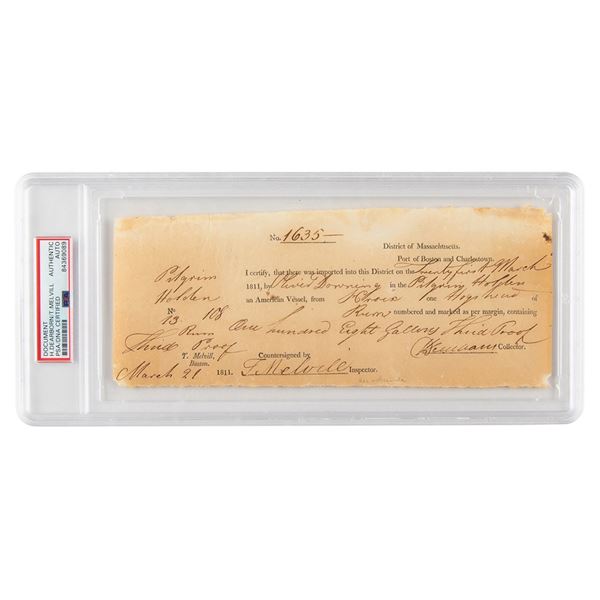 DOCUMENT
H.DEARBORN/T.MELVILL AUTHENTIC
AUTO
PSA/DNA CERTIFIED 84369089
No. 1635
District of Massachusetts.
Port of Boston and Charlestown.
Pilgrim
Holden
No
13 108
Rum
Third Proof
T. Melvill,
Boston.
March 21 1811.
I certify, that there was imported into this District on the Twenty first March
1811, by Oliver Downing in the Pilgrim Holden
an American Vessel, from St Croix one Hogshead of
Rum numbered and marked as per margin, containing
One hundred Eight Gallons Third Proof
Collector.
Countersigned by
T. Melvill Inspector.